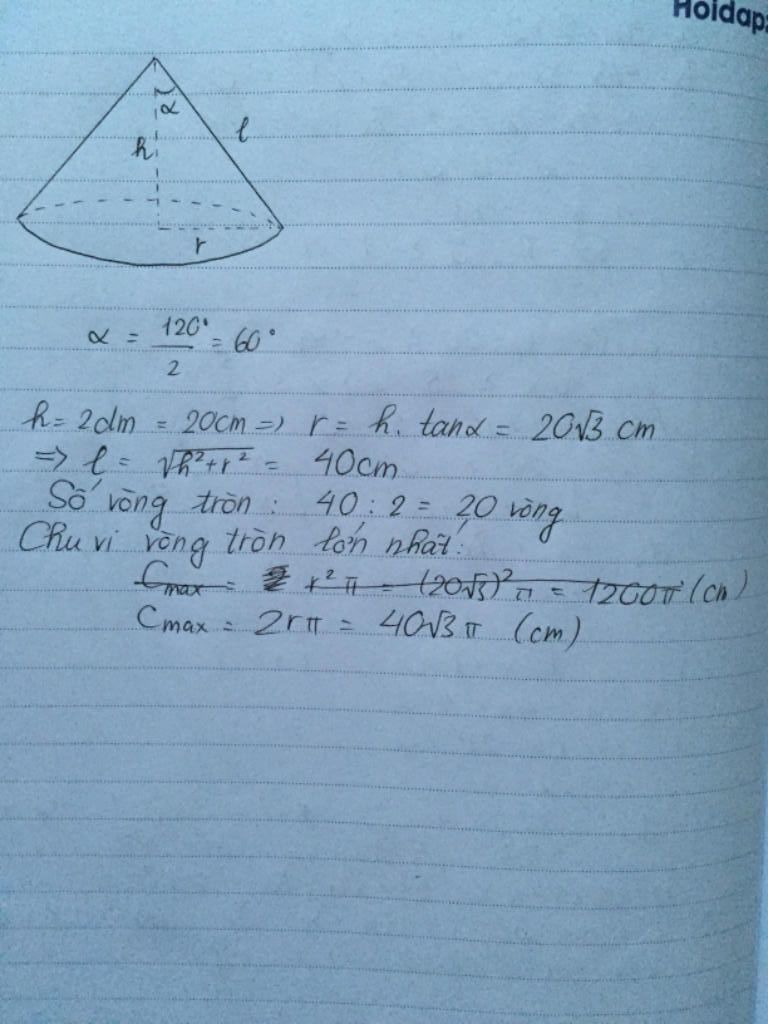 Hoidap
α
h
l
r
α = 120°/2 = 60°
h = 2dm = 20cm => r = h. tanα = 20√3 cm
=> l = √h²+r² = 40cm
Số vòng tròn : 40 : 2 = 20 vòng
Chu vi vòng tròn lớn nhất:
Cmax = r²π = (20√3)²π = 1200π (cm)
Cmax = 2rπ = 40√3π (cm)